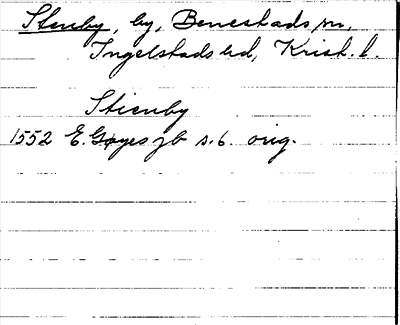 Stenby, by, Benestads sn,
Ingelstads hd, Krist. l.
Stienby
1552 E. Gøyes jb s. 6. orig.